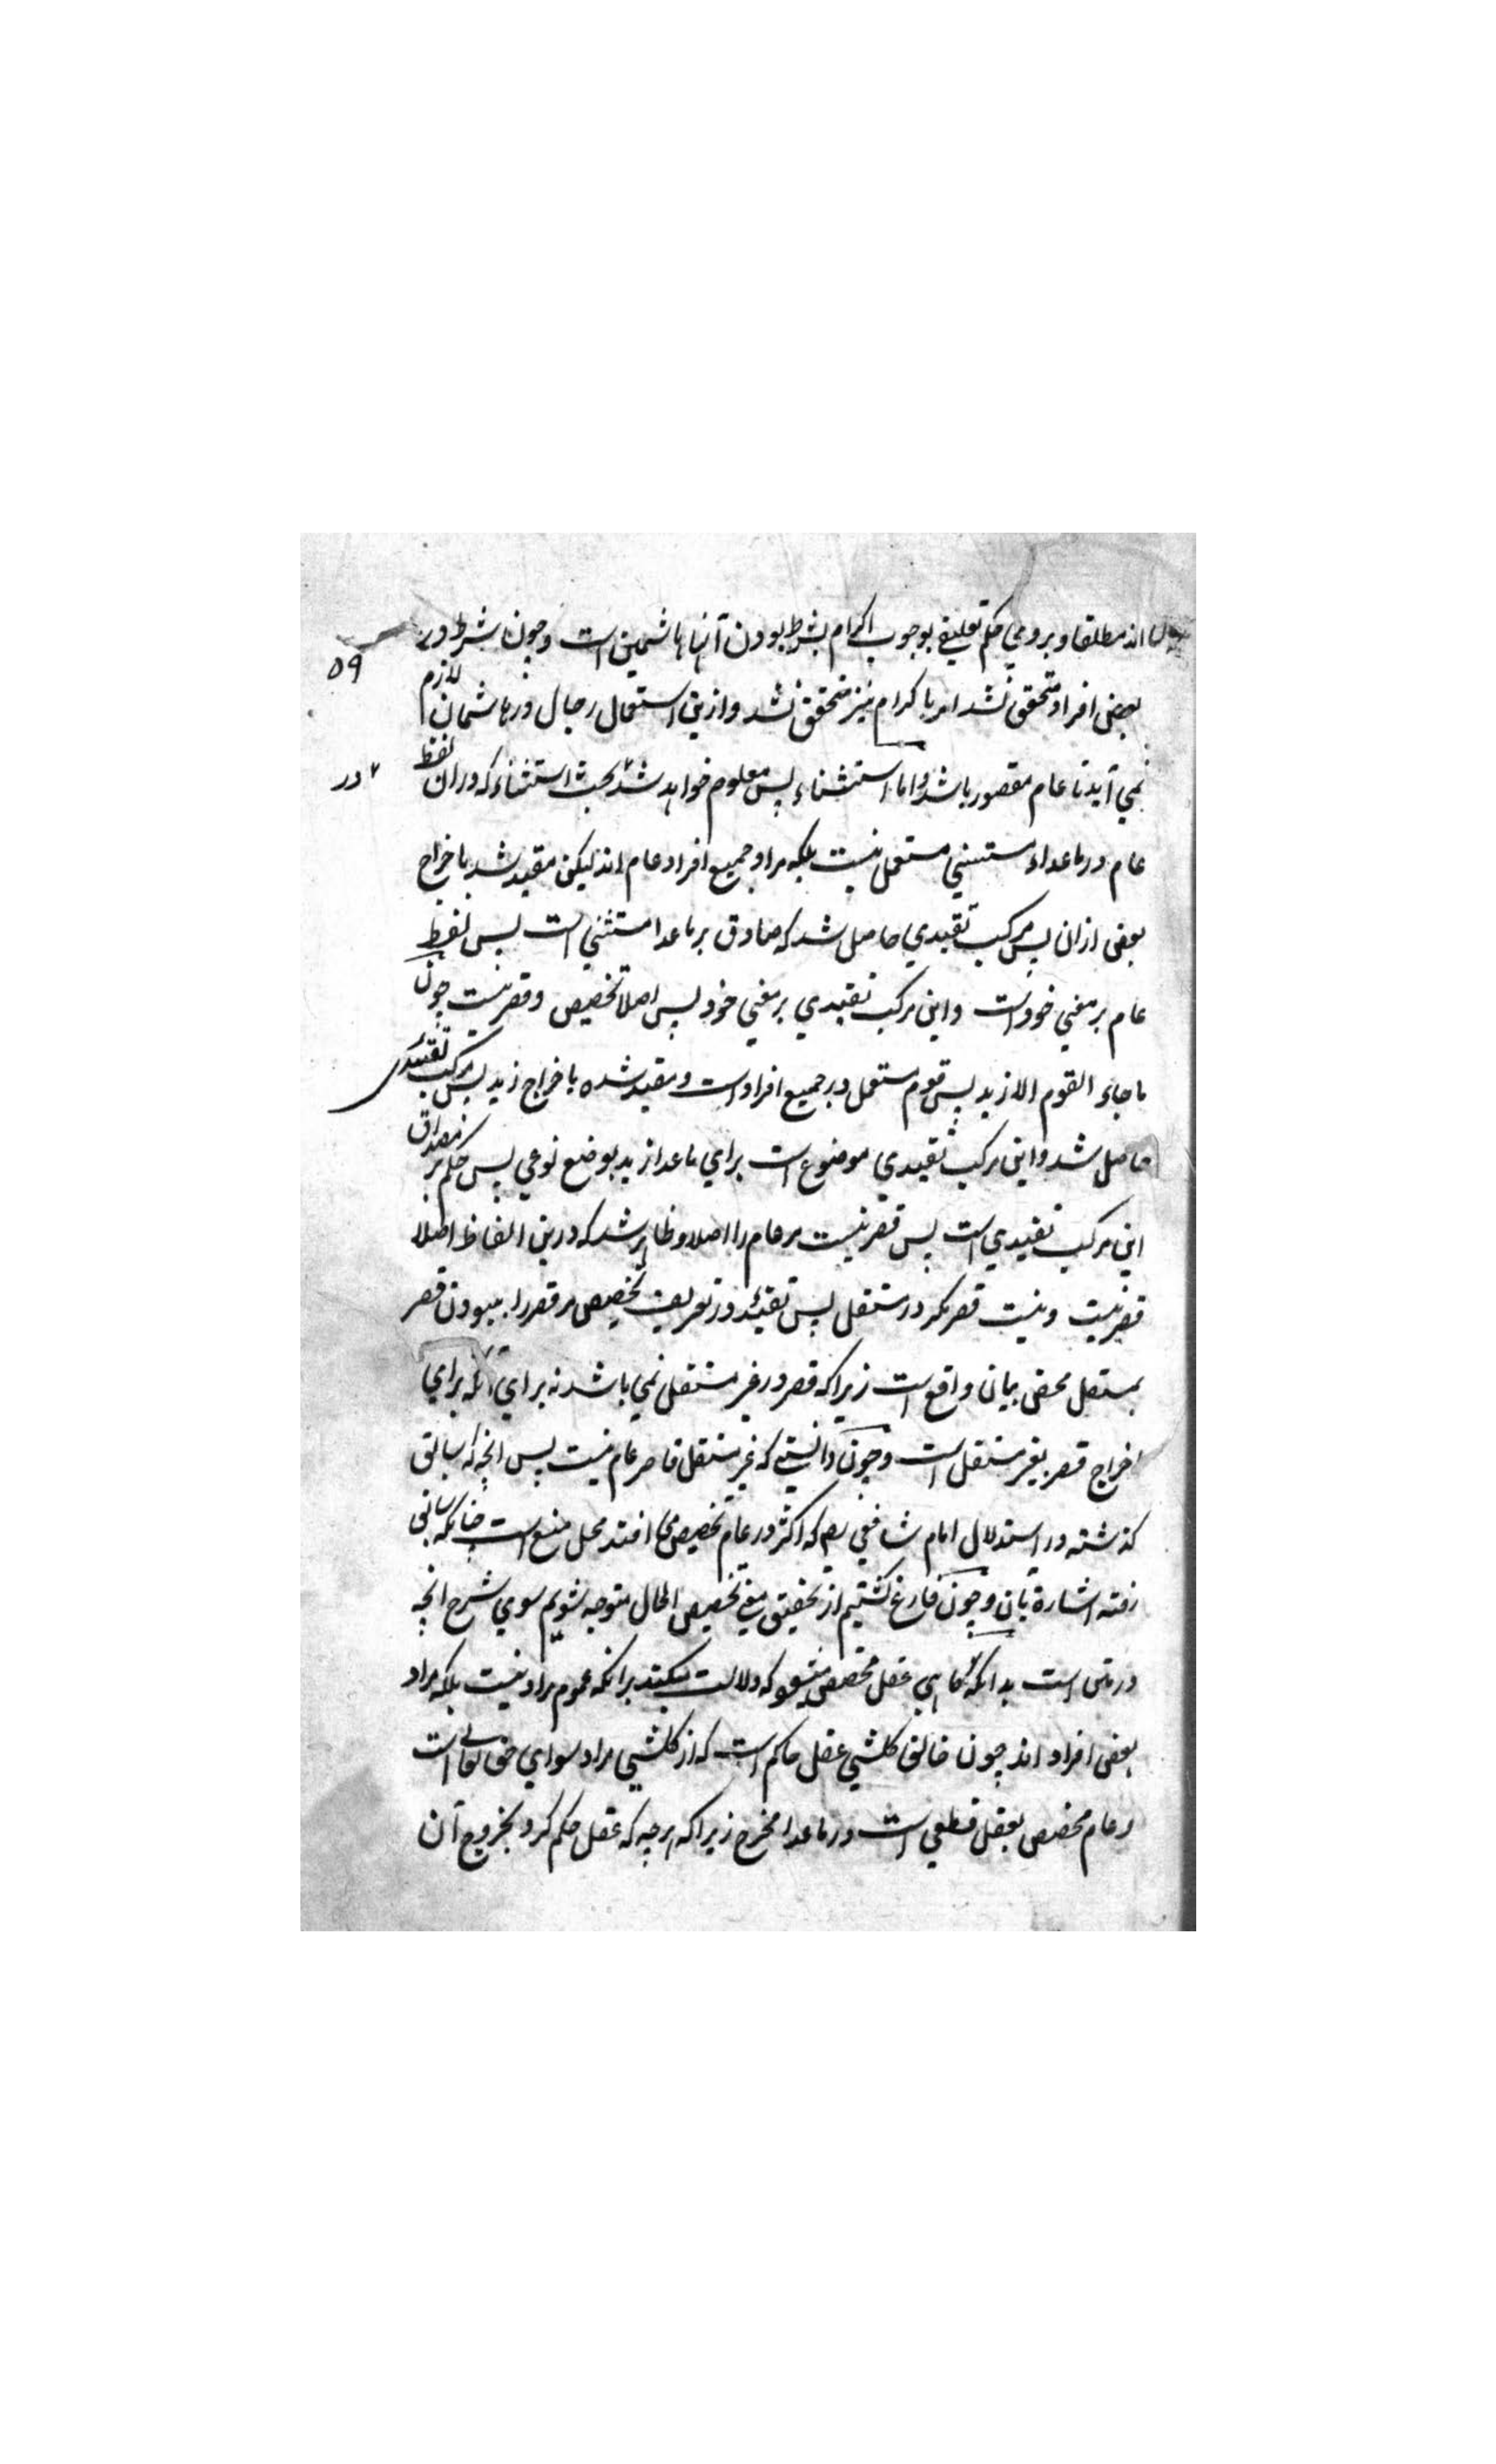 اند مطلقا و بروي حكم تعليق بوجوب اكرام بشرط بودن آنها هاشميين است و چون شرط در
۵۹
بعض افراد متحقق نشد امر باكرام نيز متحقق نشد و ازين استعمال رجال در هاشميان لازم
نمي آيد تا عام مقصور باشد و اما استثناء پس معلوم خواهد شد بحث استثناء كه دران لفظ
در
عام در ماعداء مستثني مستعمل نيست بلكه مراد جميع افراد عام اند ليكن مقيد شد باخراج
بعض ازان پس مركب تقييدي حاصل شد كه صادق بر ماعدا مستثني است پس لفظ
عام بر معني خود است و اين مركب تقييدي بر معني خود پس اصلا تخصيص و قصر نيست چون
ما جاء القوم الا زيد پس قوم مستعمل در جميع افراد است و مقيد شده باخراج زيد پس مركب تقييدي
حاصل شد و اين مركب تقييدي موضوع است براي ماعدا زيد بوضع نوعي پس حكم بر مصداق
اين مركب تقييدي است پس قصر نيست مر عام را اصلا و ظاهر شد كه درين الفاظ اصلا
قصر نيست و نيست قصر مگر در مستقل پس تقييد در تعريف تخصيص مر قصر را ببودن قصر
بمستقل محض بيان واقع است زيرا كه قصر در غير مستقل نمي باشد نه براي آنكه براي
اخراج قصر بغير مستقل است و چون دانستي كه غير مستقل قاصر عام نيست پس انچه كه سابق
گذشته در استدلال امام شافعي رح كه اكثر در عام تخصيص مي افتد محل منع است چنانكه سابق
رفته اشارة بآن و چون فارغ گشتيم از تحقيق معني تخصيص الحال متوجه شويم سوي شرح انچه
در متن است بدانكه گاهي عقل مخصص ميشود كه دلالت ميكند برانكه عموم مراد نيست بلكه مراد
بعض افراد اند چون خالق كلشي عقل حاكم است كه از كلشي مراد سواي حق تعالي است
و عام مخصص بعقل قطعي است در ماعدا مخرج زيرا كه هرچه كه عقل حكم كرد بخروج آن